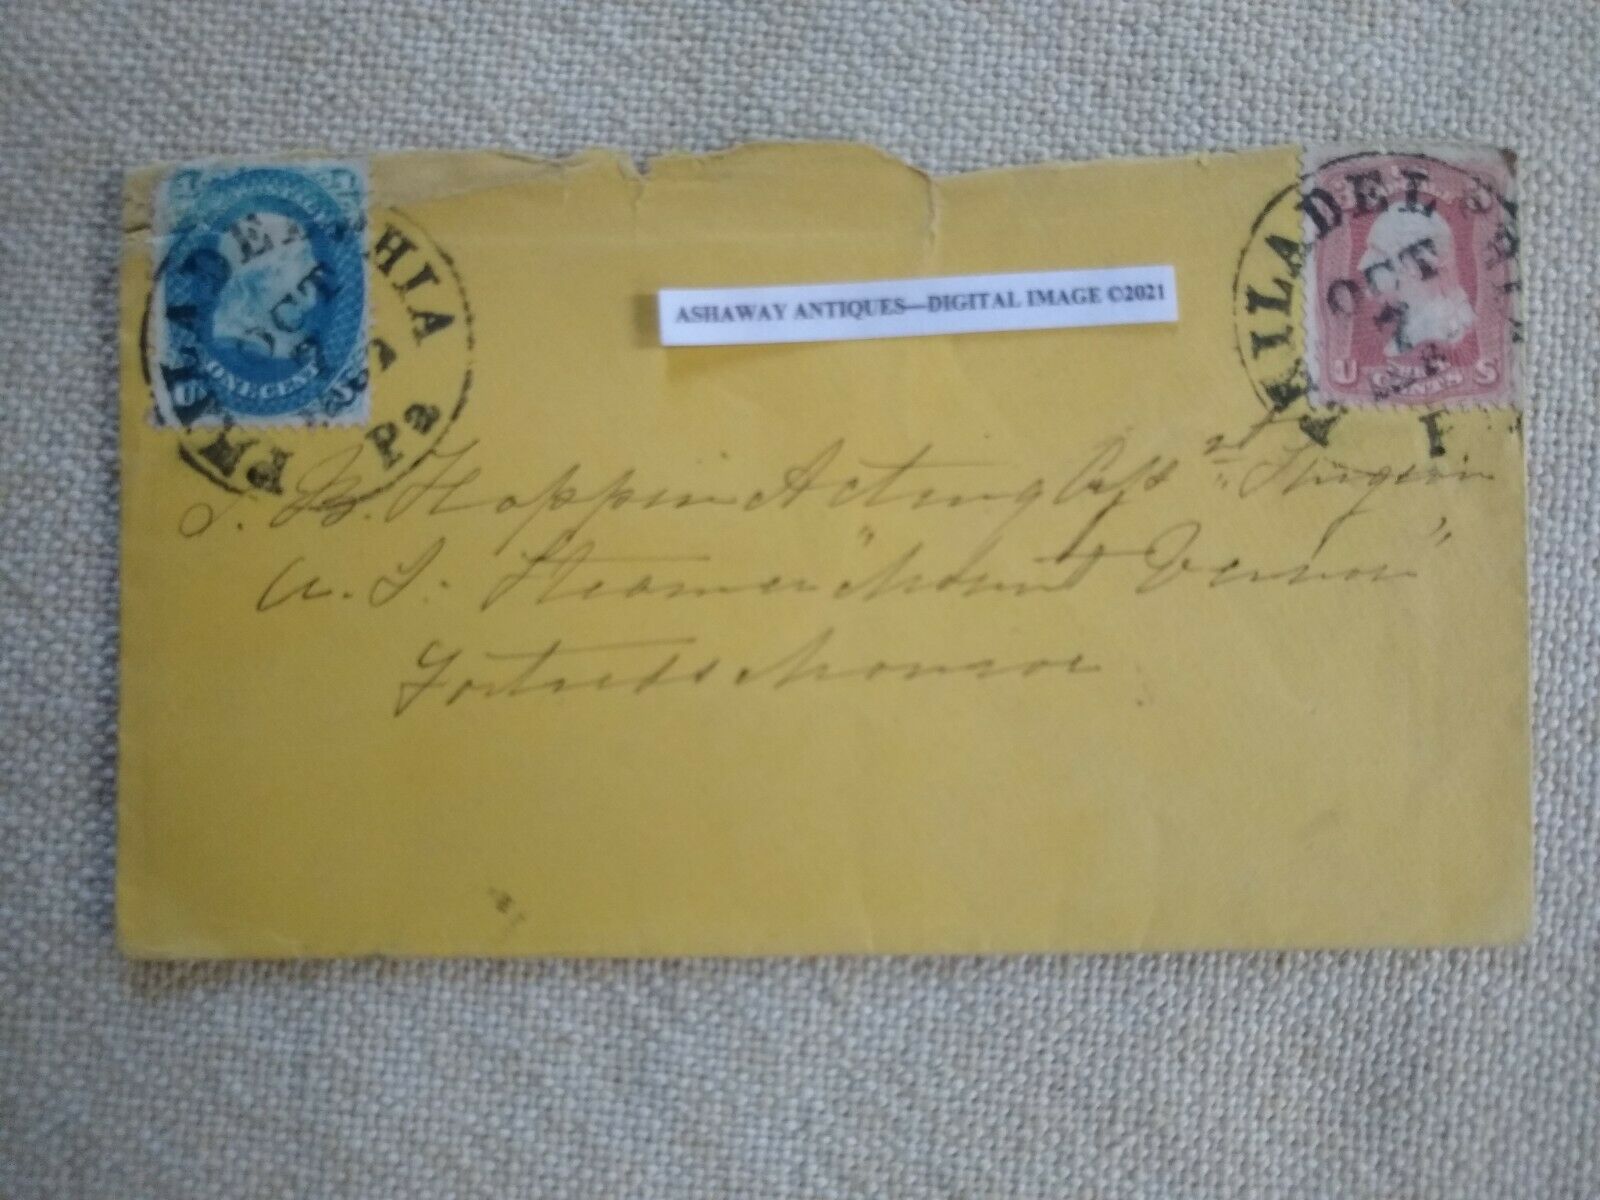 PHILADELPHIA
OCT
7
Pa
ONE CENT
U
PHILADEL
OCT
7
U S
ASHAWAY ANTIQUES—DIGITAL IMAGE ©2021
J. B. Hoppin Acting
U. S. Steamer "Mount Vernon"
Fortress Monroe